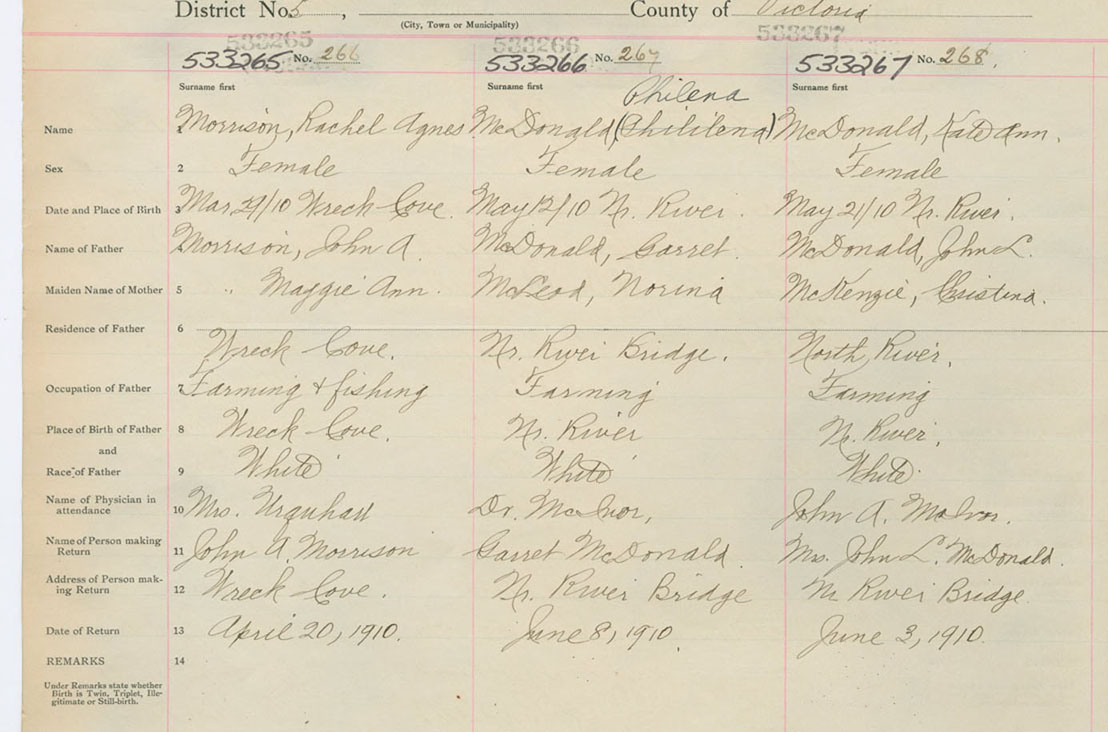 District No. 5, County of Victoria
(City, Town or Municipality)
533265 533266 533267
533265 No. 266 533266 No. 267 533267 No. 268.
Surname first Surname first Surname first
Philena
Name 1 Morrison, Rachel Agnes McDonald (Phililena) McDonald, Kate Ann.
Sex 2 Female Female Female
Date and Place of Birth 3 Mar. 29/10 Wreck Cove. May 12/10 Nr. River. May 21/10 Nr. River.
Name of Father Morrison, John A. McDonald, Garret. McDonald, John L.
Maiden Name of Mother 5 " Maggie Ann. McLeod, Norina McKenzie, Cristina.
Residence of Father 6
Wreck Cove. Nr. River Bridge. North River.
Occupation of Father 7 Farming & fishing Farming Farming
Place of Birth of Father 8 Wreck Cove. Nr. River Nr. River.
and
Race of Father 9 White White White
Name of Physician in
attendance 10 Mrs. Urquhart Dr. McIvor, John A. McIvor.
Name of Person making
Return 11 John A. Morrison Garret McDonald. Mrs. John L. McDonald.
Address of Person mak-
ing Return 12 Wreck Cove. Nr. River Bridge Nr River Bridge.
Date of Return 13 April 20, 1910. June 8, 1910. June 3, 1910.
REMARKS 14
Under Remarks state whether
Birth is Twin, Triplet, Ille-
gitimate or Still-birth.